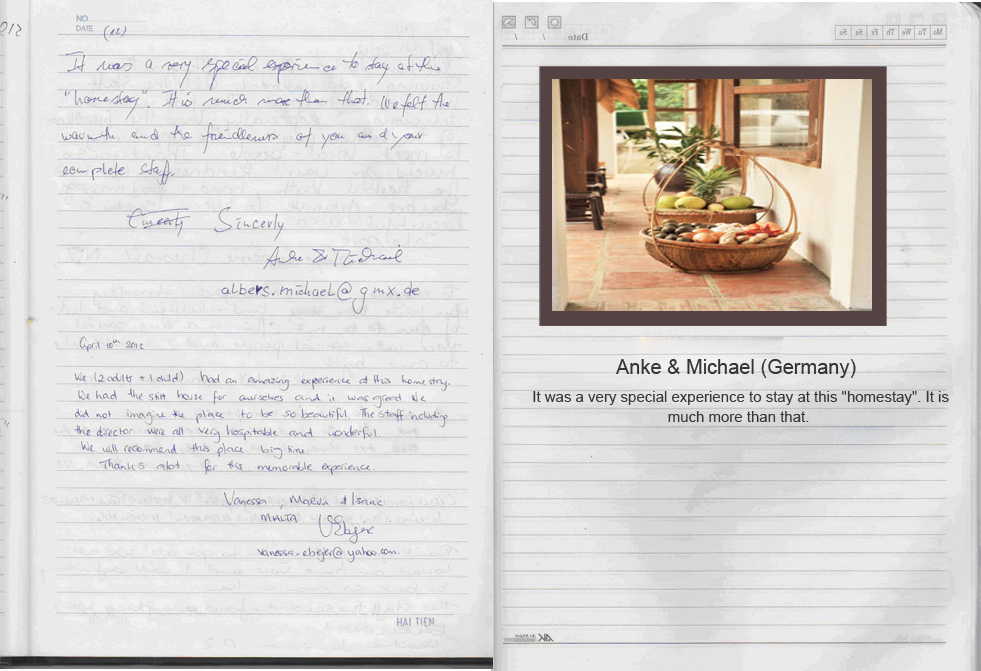 NO.
DATE (12)
It was a very special experience to stay at this
"homestay". It is much more than that. We felt the
warmth and the friedleness of you and your
complete staff.
Sincerly
Anke & Michael
albers.michael@gmx.de
April 10th 2012
We (2 adults + 1 child) had an amazing experience at this homestay.
We had the stilt house for ourselves and it was great. We
did not imagine the place to be so beautiful. The staff including
the director were all very hospitable and wonderful.
We will recommend this place big time.
Thanks alot for this memorable experience.
Vanessa, Marvin + Isaac
MALTA
VEbejer
vanessa-ebejer@yahoo.com.
HAI TIEN
Date / /
Mo Tu We Th Fr Sa Su
Anke & Michael (Germany)
It was a very special experience to stay at this "homestay". It is
much more than that.
AK